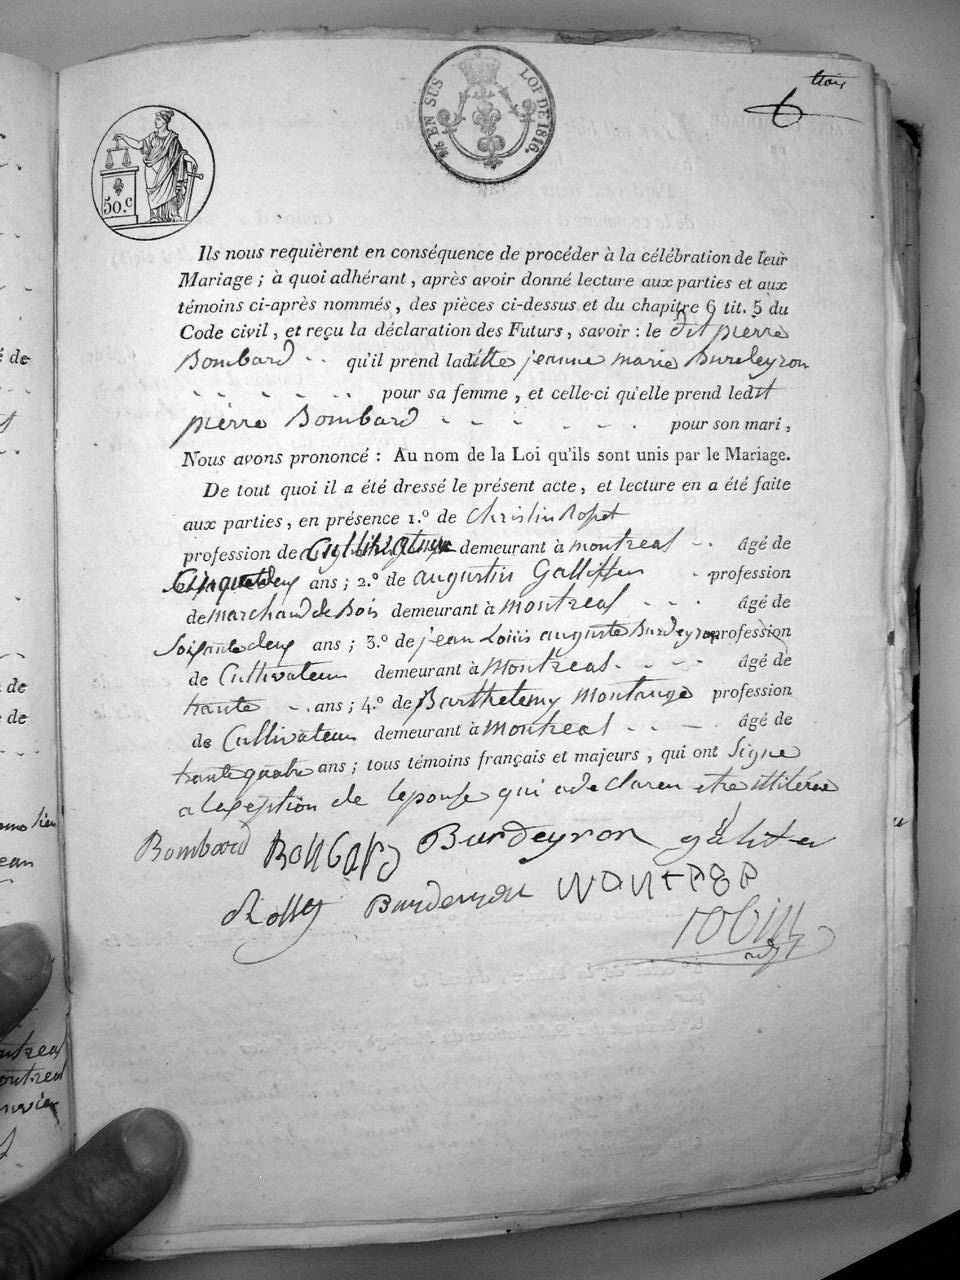 trois
6
¼ EN SUS LOI DE 1816.
50.c
Ils nous requièrent en conséquence de procéder à la célébration de leur
Mariage ; à quoi adhérant, après avoir donné lecture aux parties et aux
témoins ci-après nommés, des pièces ci-dessus et du chapitre 6 tit. 5 du
Code civil, et reçu la déclaration des Futurs, savoir : le dit pierre
Bombard qu'il prend laditte jeanne marie Burdeyron
pour sa femme, et celle-ci qu'elle prend ledit
pierre Bombard pour son mari,
Nous avons prononcé : Au nom de la Loi qu'ils sont unis par le Mariage.
De tout quoi il a été dressé le présent acte, et lecture en a été faite
aux parties, en présence 1.º de Christin
profession de Cultivateur demeurant à montreal âgé de
Cinquantedeux ans ; 2.º de augustin profession
de marchand de Bois demeurant à montreal âgé de
Soixantedeux ans ; 3.º de jean Louis auguste Burdeyron profession
de Cultivateur demeurant à montreal âgé de
trante ans ; 4.º de Barthelemy Montange profession
de Cultivateur demeurant à montreal âgé de
trantequatre ans ; tous témoins français et majeurs, qui ont Signe
alexeption de lepouse qui a declaren etre illiterée
Bombard Burdeyron
Burdeyron
robin
adjt